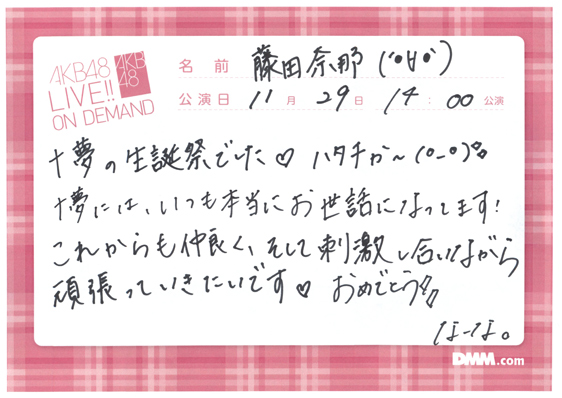 AKB48
LIVE!!
ON DEMAND
AKB
48
名前 藤田奈那 (°∀°)
公演日 11月29日 14:00公演
十夢の生誕祭でした♡ ハタチか〜(°_°)
十夢には、いつも本当にお世話になってます!
これからも仲良く、そして刺激し合いながら
頑張っていきたいです♡ おめでとう!!
なーな。
DMM.com